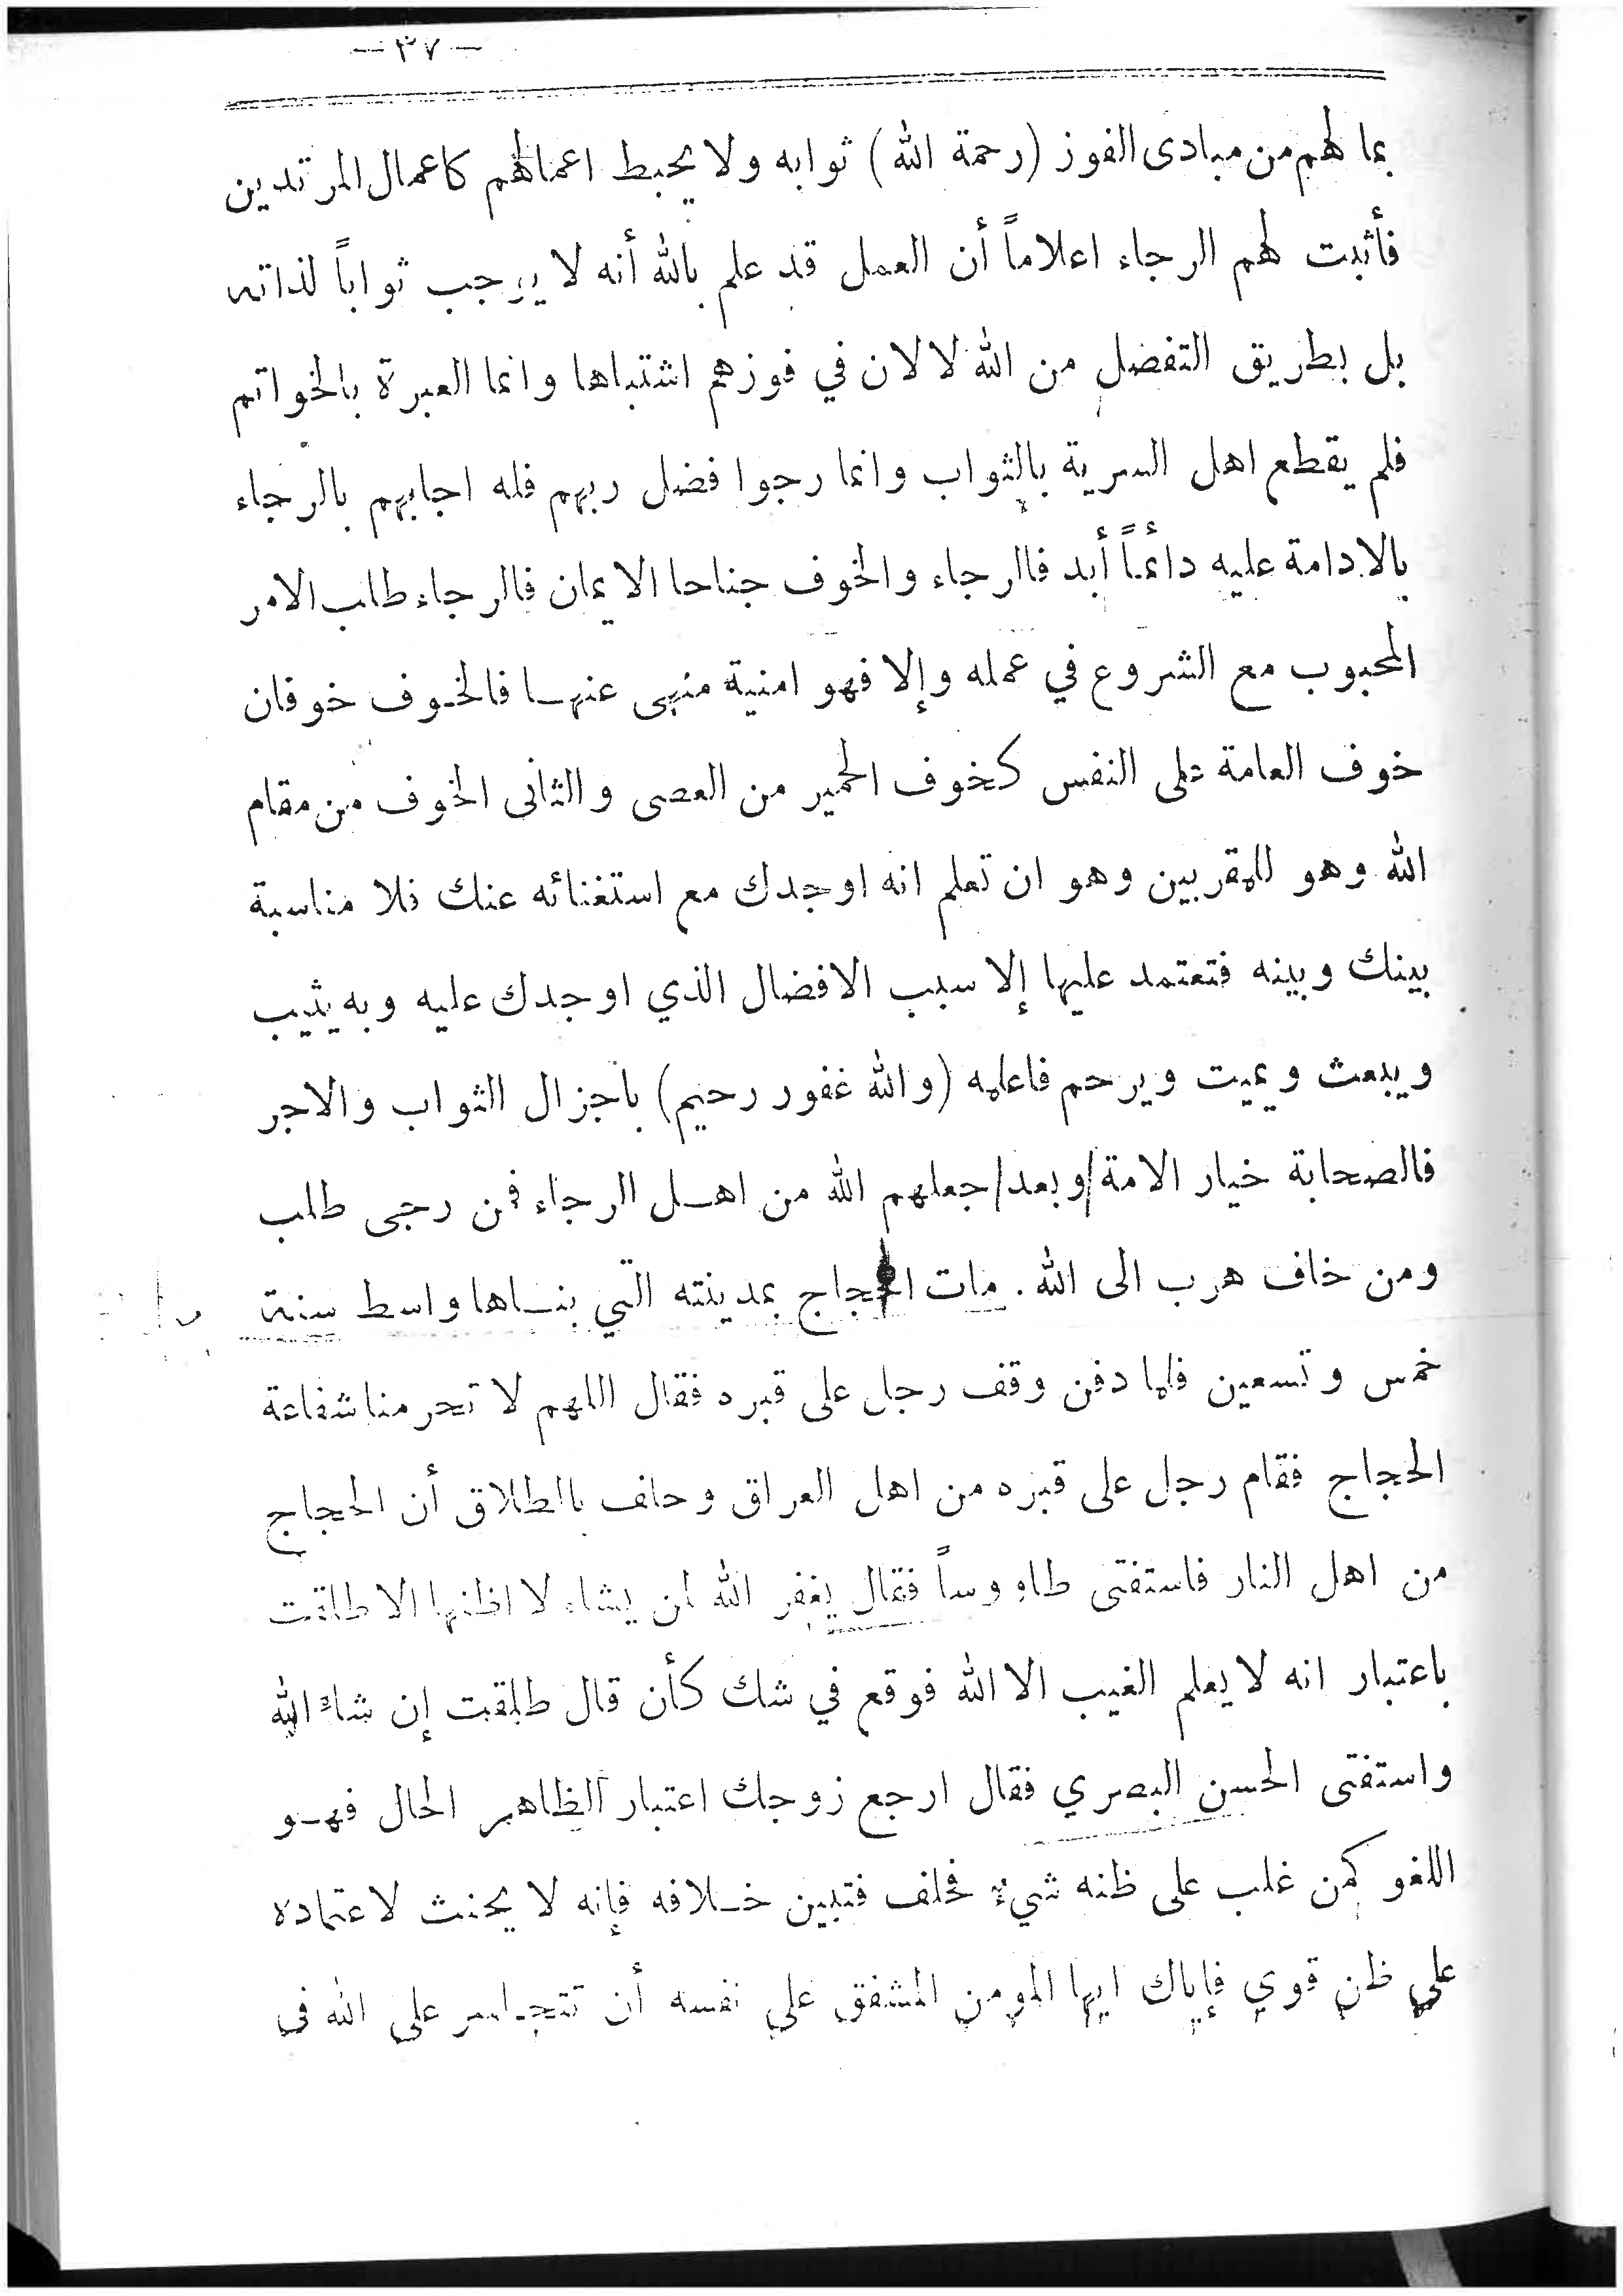 — ٣٧ —
بما لهم من مبادى الفوز (رحمة الله) ثوابه ولا يحبط اعمالهم كاعمال المرتدين
فأثبت لهم الرجاء اعلاماً أن العمل قد علم بالله أنه لا يوجب ثواباً لذاته
بل بطريق التفضل من الله لا لان في فوزهم اشتباها وانما العبرة بالخواتم
فلم يقطع اهل السرية بالثواب وانما رجوا فضل ربهم فله اجابهم بالرجاء
بالادامة عليه دائماً أبد فالرجاء والخوف جناحا الايمان فالرجاء طلب الامر
المحبوب مع الشروع في عمله وإلا فهو امنية منهى عنها فالخوف خوفان
خوف العامة على النفس كخوف الحمير من العصى والثانى الخوف من مقام
الله وهو للمقربين وهو ان تعلم انه اوجدك مع استغنائه عنك فلا مناسبة
بينك وبينه فتعتمد عليها إلا سبب الافضال الذي اوجدك عليه وبه يثيب
ويبعث ويميت ويرحم فاعلمه (والله غفور رحيم) باجزال الثواب والاجر
فالصحابة خيار الامة/وبعد/جعلهم الله من اهل الرجاء فمن رجى طلب
ومن خاف هرب الى الله . مات الحجاج بمدينته التي بناها واسط سنة
خمس وتسعين فلما دفن وقف رجل على قبره فقال اللهم لا تحرمنا شفاعة
الحجاج فقام رجل على قبره من اهل العراق وحلف بالطلاق أن الحجاج
من اهل النار فاستفتى طاووساً فقال يغفر الله لمن يشاء لا اظنها الا طلقت
باعتبار انه لا يعلم الغيب الا الله فوقع في شك كأن قال طلقت إن شاء الله
واستفتى الحسن البصري فقال ارجع زوجك اعتبار الظاهر الحال فهو
اللغو كمن غلب على ظنه شيء فحلف فتبين خلافه فإنه لا يحنث لاعتماده
على ظن قوي فإياك ايها المومن المشفق على نفسه أن تتجاسر على الله فى